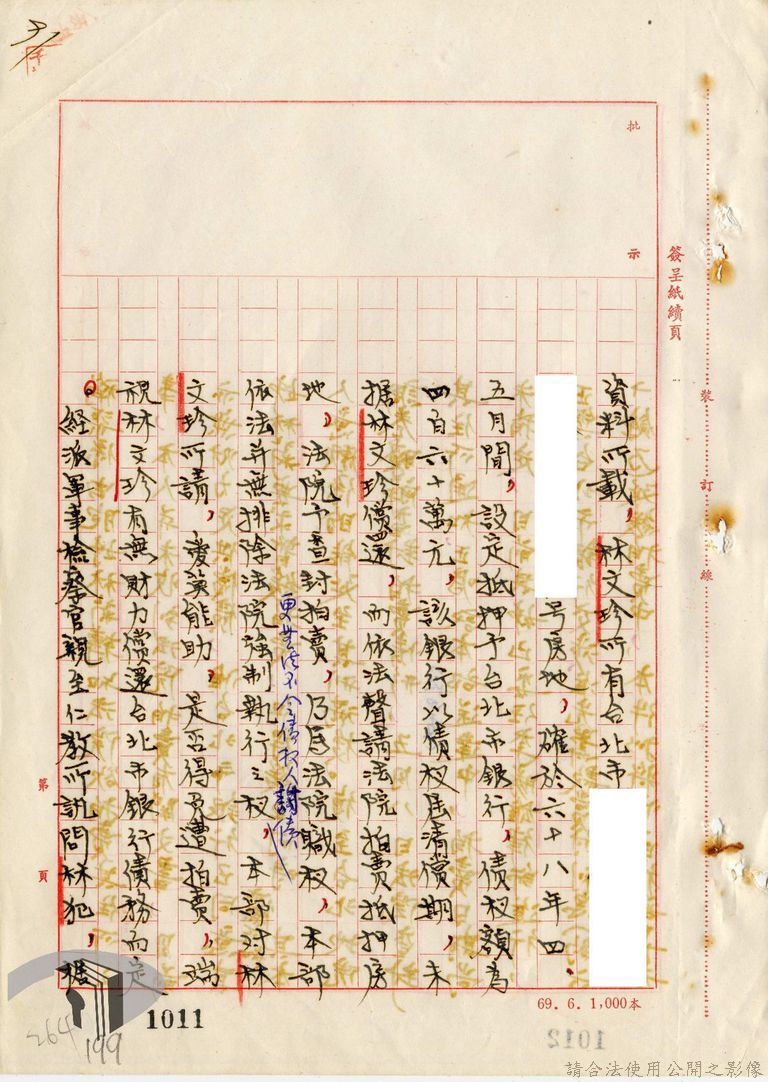 批示
簽呈紙續頁
裝訂線
第頁
資料所載，林文珍所有台北市
号房地，確於六十八年四、
五月間，設定抵押予台北市銀行，債权額為
四百六十萬元，該銀行以債权屆清償期，未
据林文珍償還，而依法聲請法院拍賣抵押房
地，法院予查封拍賣，乃為法院職权，本部
依法并無排除法院強制執行之权，本部对林
文珍所請，愛莫能助。是否得免遭拍賣，端
視林文珍有無財力償還台北市銀行債務而定
。經派軍事檢察官親至仁教所訊問林犯，據
69.6.1,000本
1011
1012
264
199
請合法使用公開之影像